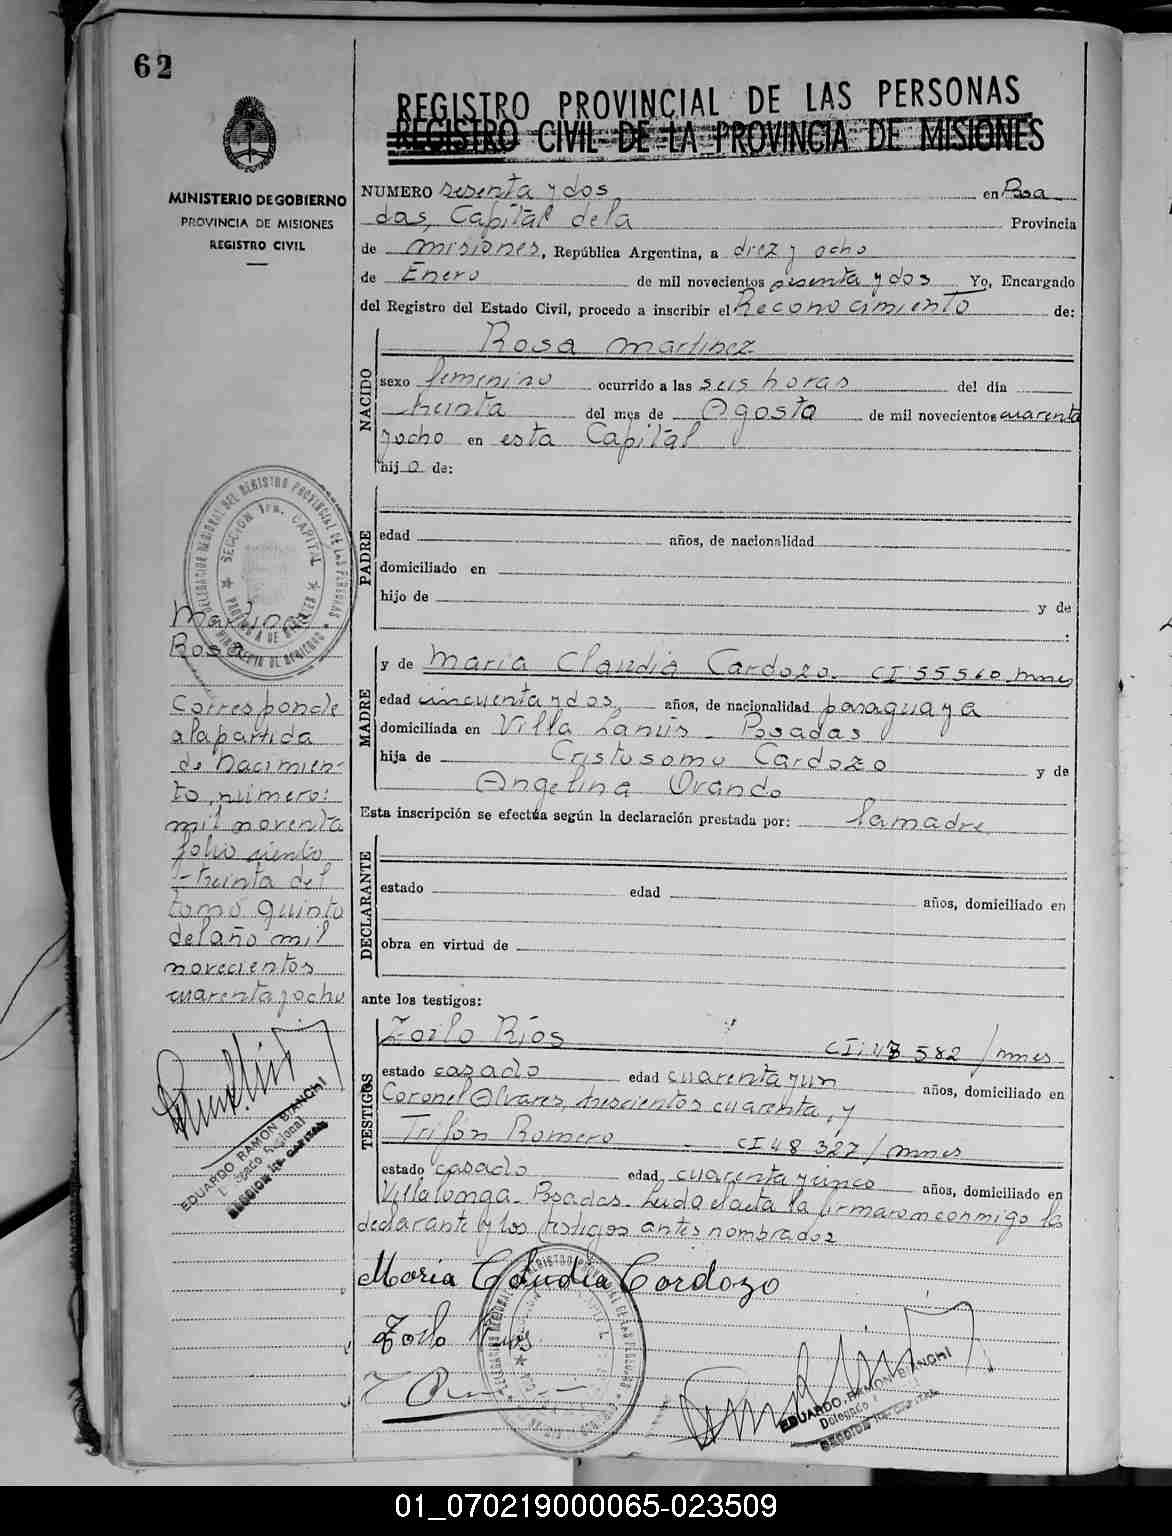 62
REGISTRO PROVINCIAL DE LAS PERSONAS
REGISTRO CIVIL DE LA PROVINCIA DE MISIONES
MINISTERIO DE GOBIERNO
PROVINCIA DE MISIONES
REGISTRO CIVIL
NUMERO sesenta y dos en Posa
das, Capital dela Provincia
de misiones, República Argentina, a diez y ocho
de Enero de mil novecientos sesenta y dos Yo, Encargado
del Registro del Estado Civil, procedo a inscribir el Reconocimiento de:
NACIDO
Rosa martinez
sexo femenino ocurrido a las seis horas del día
treinta del mes de Agosto de mil novecientos cuarenta
yocho en esta Capital
hijo de:
PADRE
edad años, de nacionalidad
domiciliado en
hijo de y de
:
MADRE
y de Maria Claudia Cardozo. CI 55560 mnes
edad cincuenta y dos años, de nacionalidad paraguaya
domiciliada en Villa Lanús - Posadas
hija de Cristosomo Cardozo y de
Angelina Ovando
Esta inscripción se efectúa según la declaración prestada por: la madre
DECLARANTE
estado edad años, domiciliado en
obra en virtud de
ante los testigos:
TESTIGOS
Zoilo Ríos CI: 582 / mnes
estado casado edad cuarenta y un años, domiciliado en
Coronel Alvares, trescientos cuarenta, y
Trifón Romero CI 48 327 / mnes
estado casado edad cuarenta y cinco años, domiciliado en
Villalonga - Posadas. Leida el acta la firmaron conmigo la
declarante y los testigos antes nombrados
Maria Claudia Cardozo
Zoilo Rios
EDUARDO RAMON BIANCHI
Delegado
Rosa
Corresponde
a la partida
de nacimien-
to, número:
mil noventa
folio ciento
treinta del
tomo quinto
del año mil
novecientos
cuarenta y ocho
EDUARDO RAMON BIANCHI
DELEGACION REGIONAL DEL REGISTRO PROVINCIAL DE LAS PERSONAS
SECCION 1ra. CAPITAL
PROVINCIA DE MISIONES
01_070219000065-023509